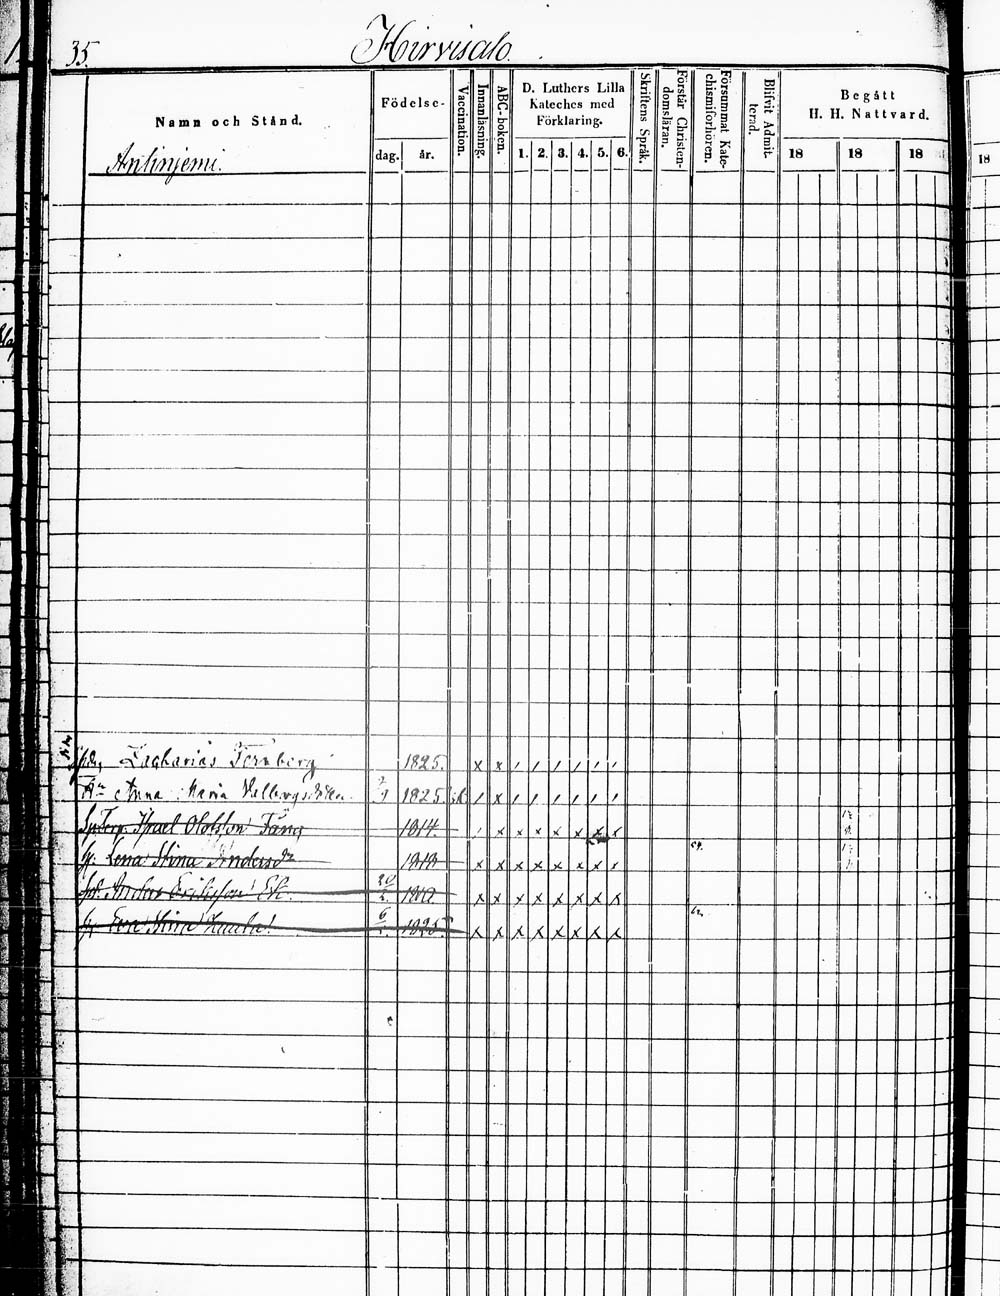 35.
Hirvisalo.
Namn och Stånd.
Födelse-
dag. år.
Vaccination.
Innanläsning.
ABC-boken.
D. Luthers Lilla
Kateches med
Förklaring.
1. 2. 3. 4. 5. 6.
Skriftens Språk.
Förstår Christen-
domsläran.
Försummat Kate-
chismiförhören.
Blifvit Admit-
terad.
Begått
H. H. Nattvard.
18 18 18
18
Anlinjemi.
Zacharias Ternberg 1825. x x / / / / / /
Anna Maria 1825. / / / / / / / /
Israel Olofsson Fång 1814. / x x x x x x x
Lena Stina Andersdr x x x x x x x x
Anders Eriksson Ek. x x x x x x x x
Eva Stina 1825 x x x x x x x x